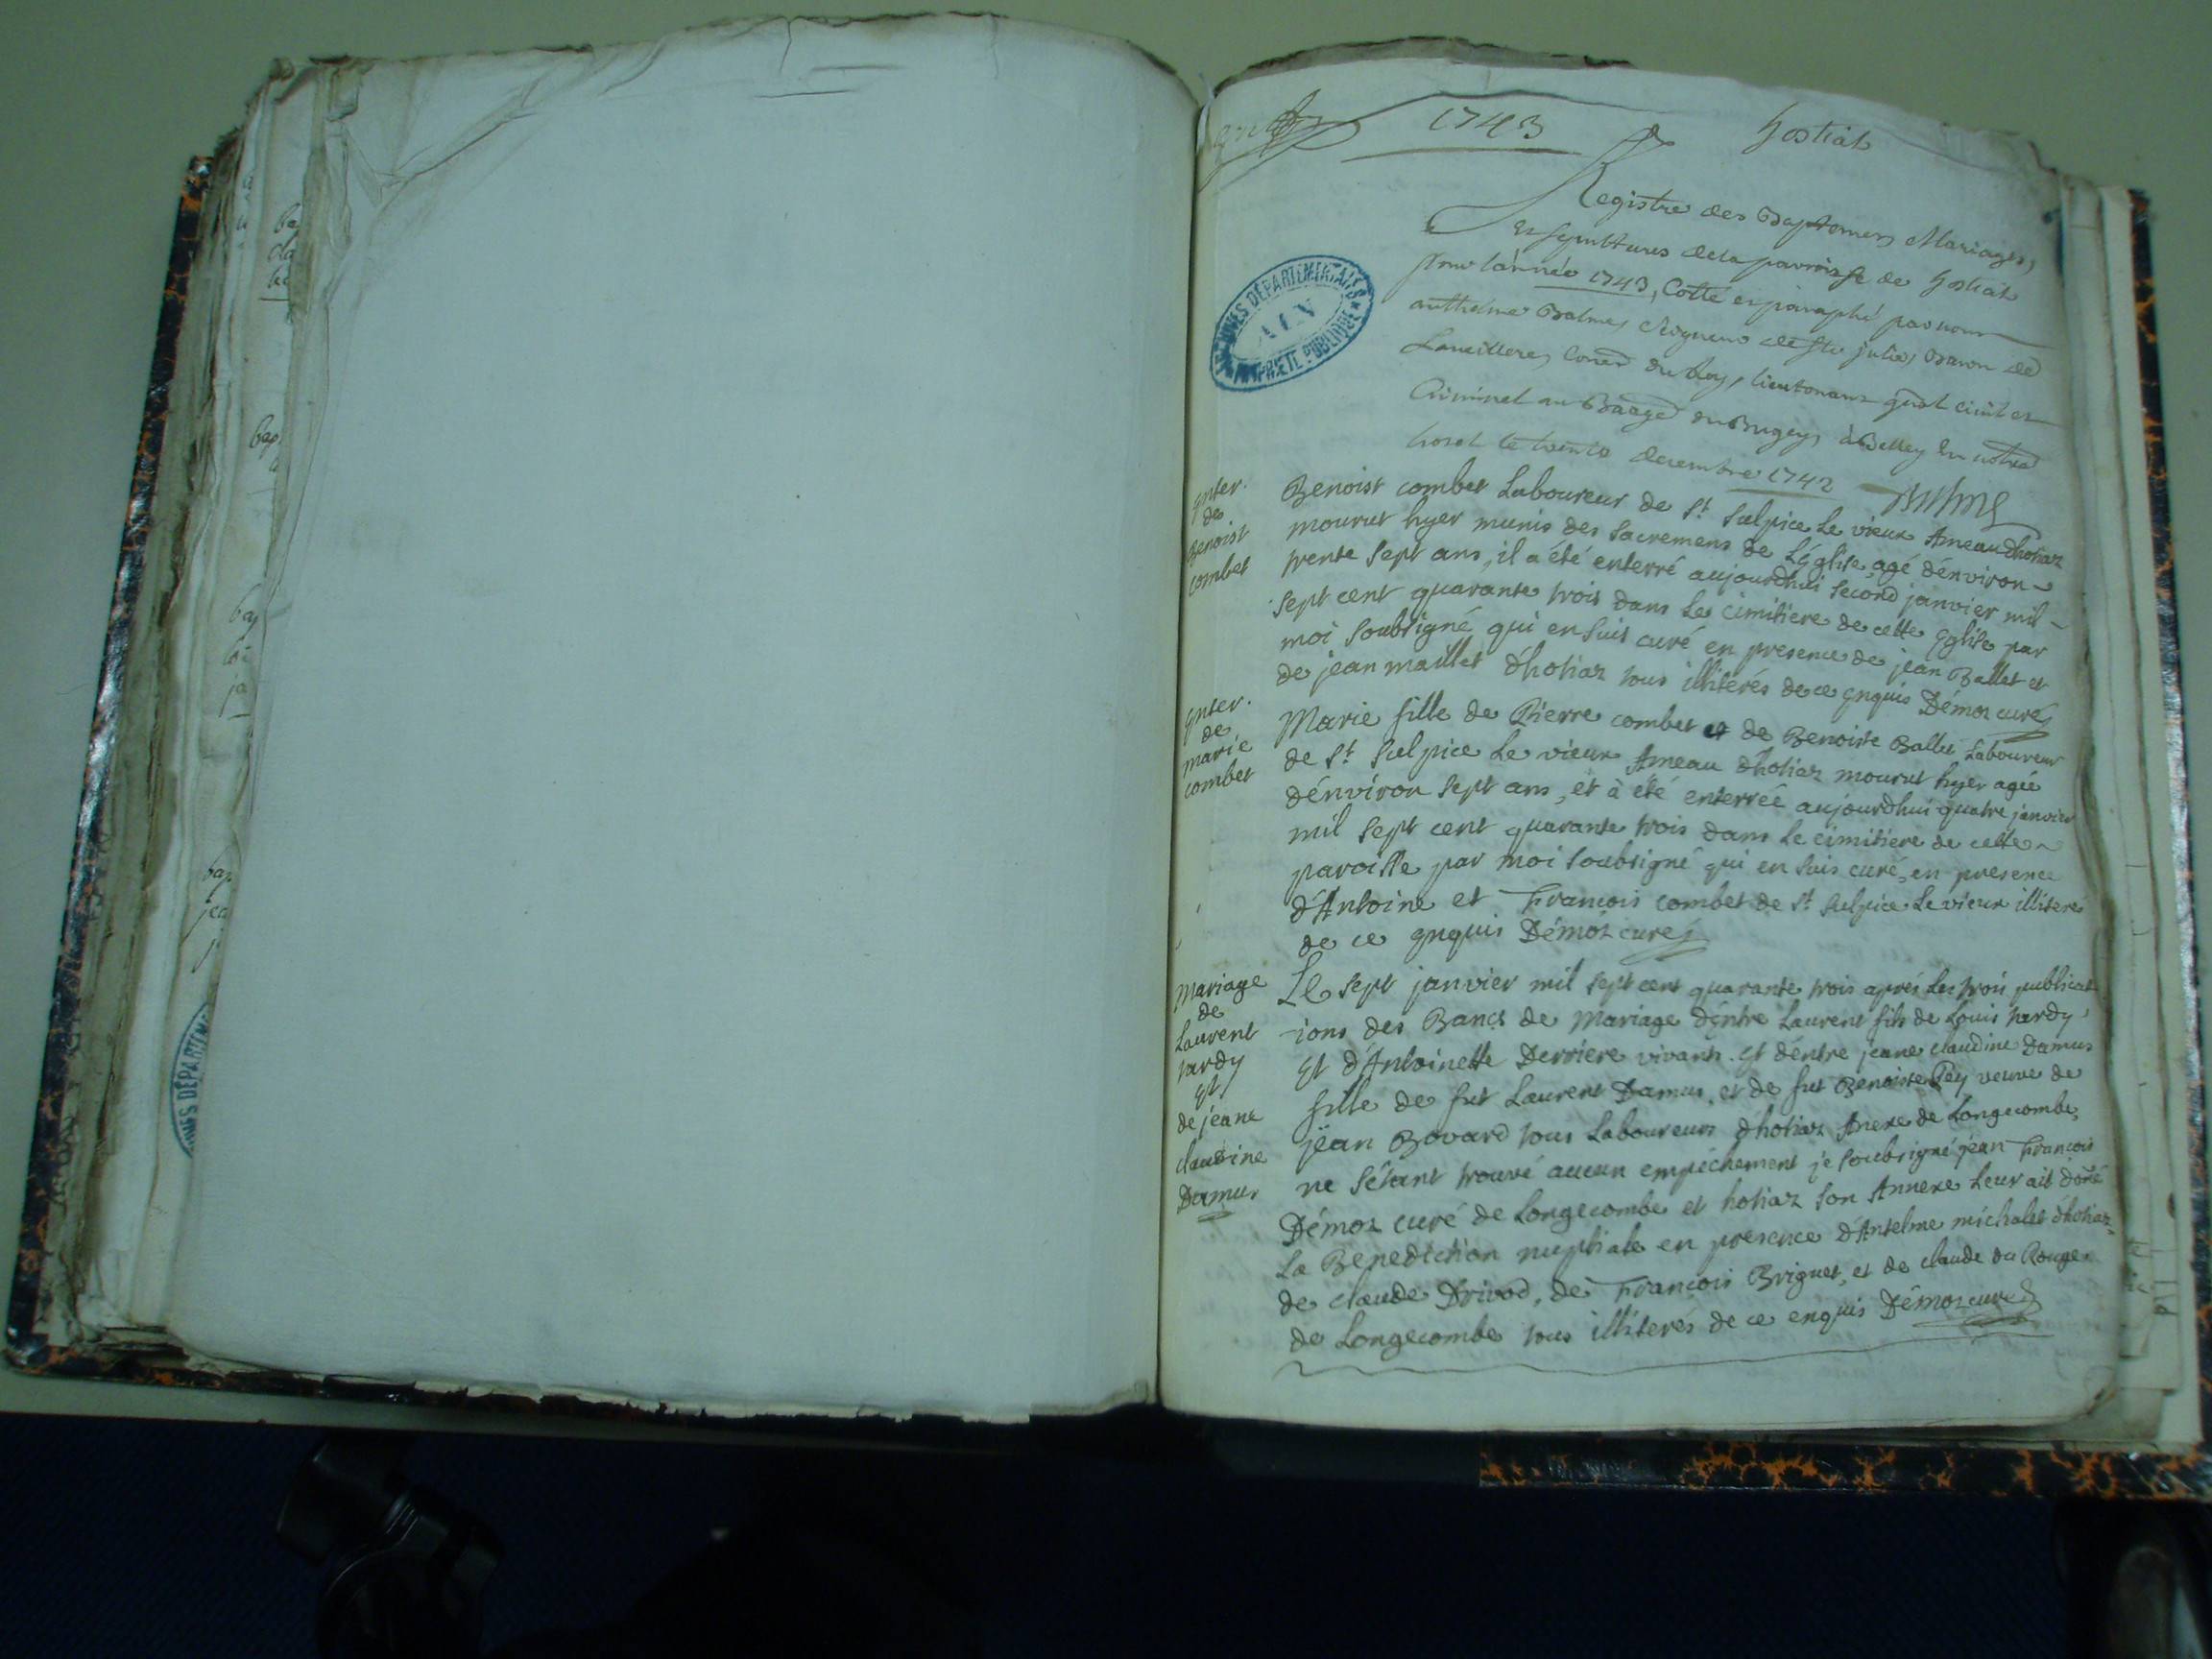 1743
hostiat
Registre des Baptemes Mariages,
et sepultures de la parroisse de hostiat
pour l'année 1743, Cotté et paraphé par nous
anthelme Balme, seigneur de Ste julie, Baron de
Conser du Roy, lieutenant gnal civil et
Criminel au Baage du Bugey, à Belley en notre
hotel le trente decembre 1742 Balme
ARCHIVES DÉPARTEMENTALES
AIN
PROPRIÉTÉ PUBLIQUE
Enter.
de
Benoist
combet
Benoist combet Laboureur de St Sulpice Le vieux Ameau dhotiaz
mourut hyer munis des sacremens de L'église, agé d'énviron
trente sept ans, il a été enterré aujourdhui second janvier mil
sept cent quarante trois dans Le cimitiere de cette Eglise par
moi soubsigné qui en suis curé en presence de jean Ballet et
de jean maillet d'hotiaz tous illiterés de ce enquis Démoz curé
Enter.
de
marie
combet
Marie fille de Pierre combet et de Benoiste Ballet Laboureur
de St Sulpice Le vieux Ameau d'hotiaz mourut hyer agée
d'énviron sept ans, et à été enterrée aujourdhui quatre janvier
mil sept cent quarante trois dans Le cimitiere de cette
paroisse par moi soubsigné qui en suis curé, en presence
d'Antoine et François combet de St Sulpice Le vieux illiteres
de ce enquis Démoz curé
Mariage
de
Laurent
tardy
Et
de jeane
claudine
Damus
Le sept janvier mil sept cent quarante trois aprés Les trois publicat
ions des Bancs de Mariage d'éntre Laurent fils de Louis tardy
Et d'Antoinette Derriere vivants. Et d'éntre jeane claudine Damus
fille de fut Laurent Damus, et de fut Benoiste Pey veuve de
jean Bovard tous Laboureurs d'hotiaz Anexe de Longecombe,
ne s'étant trouvé aucun empéchement je soubsigné jean François
Démoz curé de Longecombe et hotiaz son Annexe Leur ait doñé
La Benediction nuptiale en presence d'Antelme michalet d'hotiaz
de claude Drivod, de François Briguet, et de claude du Rouge
de Longecombe tous illiterés de ce enquis Démoz curé